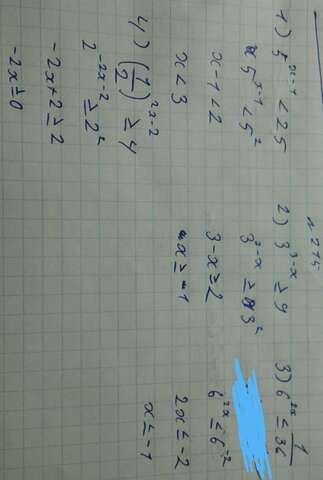 n 275
1) 5^{x-1} < 25
x 5^{x-1} < 5^2
x-1 < 2
x < 3
2) 3^{3-x} ≥ 9
3^{3-x} ≥ 3^2
3-x ≥ 2
-x ≥ -1
3) 6^{2x} ≤ 1/36
6^{2x} ≤ 6^{-2}
2x ≤ -2
x ≤ -1
4) (1/2)^{2x-2} ≥ 4
2^{-2x-2} ≥ 2^2
-2x+2 ≥ 2
-2x ≥ 0